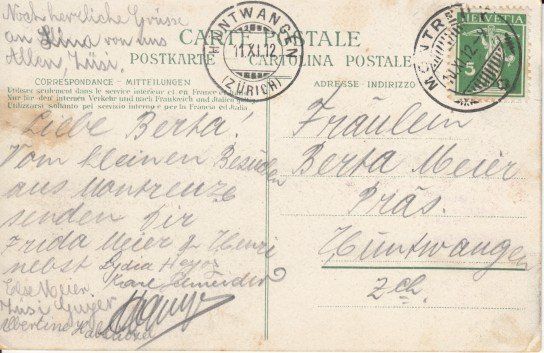 Noch herzliche Grüsse
an Lina von uns
Allen, Jüsi.
CARTE POSTALE
POSTKARTE CARTOLINA POSTALE
CORRESPONDANCE - MITTEILUNGEN
Utiliser seulement dans le service intérieur et en France
Nur für den internen Verkehr und nach Frankreich und Italien gültig
Utilizzarsi soltanto pel servizio interno e per la Francia ed Italia
Liebe Berta!
Vom kleinen
aus Montreux
senden Dir
Frida Meier & Henri
nebst Lydia
Karl
Else Meier
Jüsi
Albertine
HÜNTWANGEN
11.XI.12
(ZÜRICH)
ADRESSE - INDIRIZZO
MONTREUX
XI.12
HELVETIA
5
Fräulein
Berta Meier
Präs.
Hüntwangen
Zch.